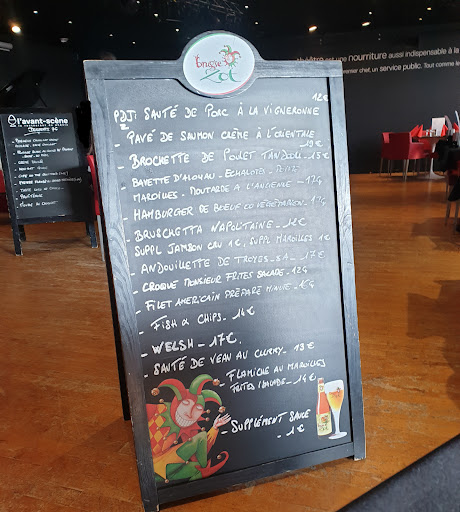 Brugse
Zot
PDJ: SAUTÉ DE PORC À LA VIGNERONNE 12€
- PAVÉ DE SAUMON CRÈME À L'ORIENTALE
19€
- BROCHETTE DE POULET TANDOORI - 15€
- BAVETTE D'ALOYAU - ECHALOTES -
MAROILLES - MOUTARDE À L'ANCIENNE - 17€
- HAMBURGER DE BOEUF OU VÉGÉTARIEN 17€
- BRUSCHETTA NAPOLITAINE - 12€
SUPPL JAMBON CRU 1€, SUPPL MAROILLES 1€
- ANDOUILLETTE DE TROYES - 5A - 17€
- CROQUE MONSIEUR FRITES SALADE - 12€
- FILET AMERICAIN PRÉPARÉ MINUTE - 16€
- FISH & CHIPS - 14€
- WELSH - 17€.
- SAUTÉ DE VEAU AU CURRY - 13€
FLAMICHE AU MAROILLES
FRITES / SALADE - 14€
- SUPPLÉMENT SAUCE
- 1€
l'avant-scène
est une nourriture aussi indispensable à la
un service public. Tout comme le